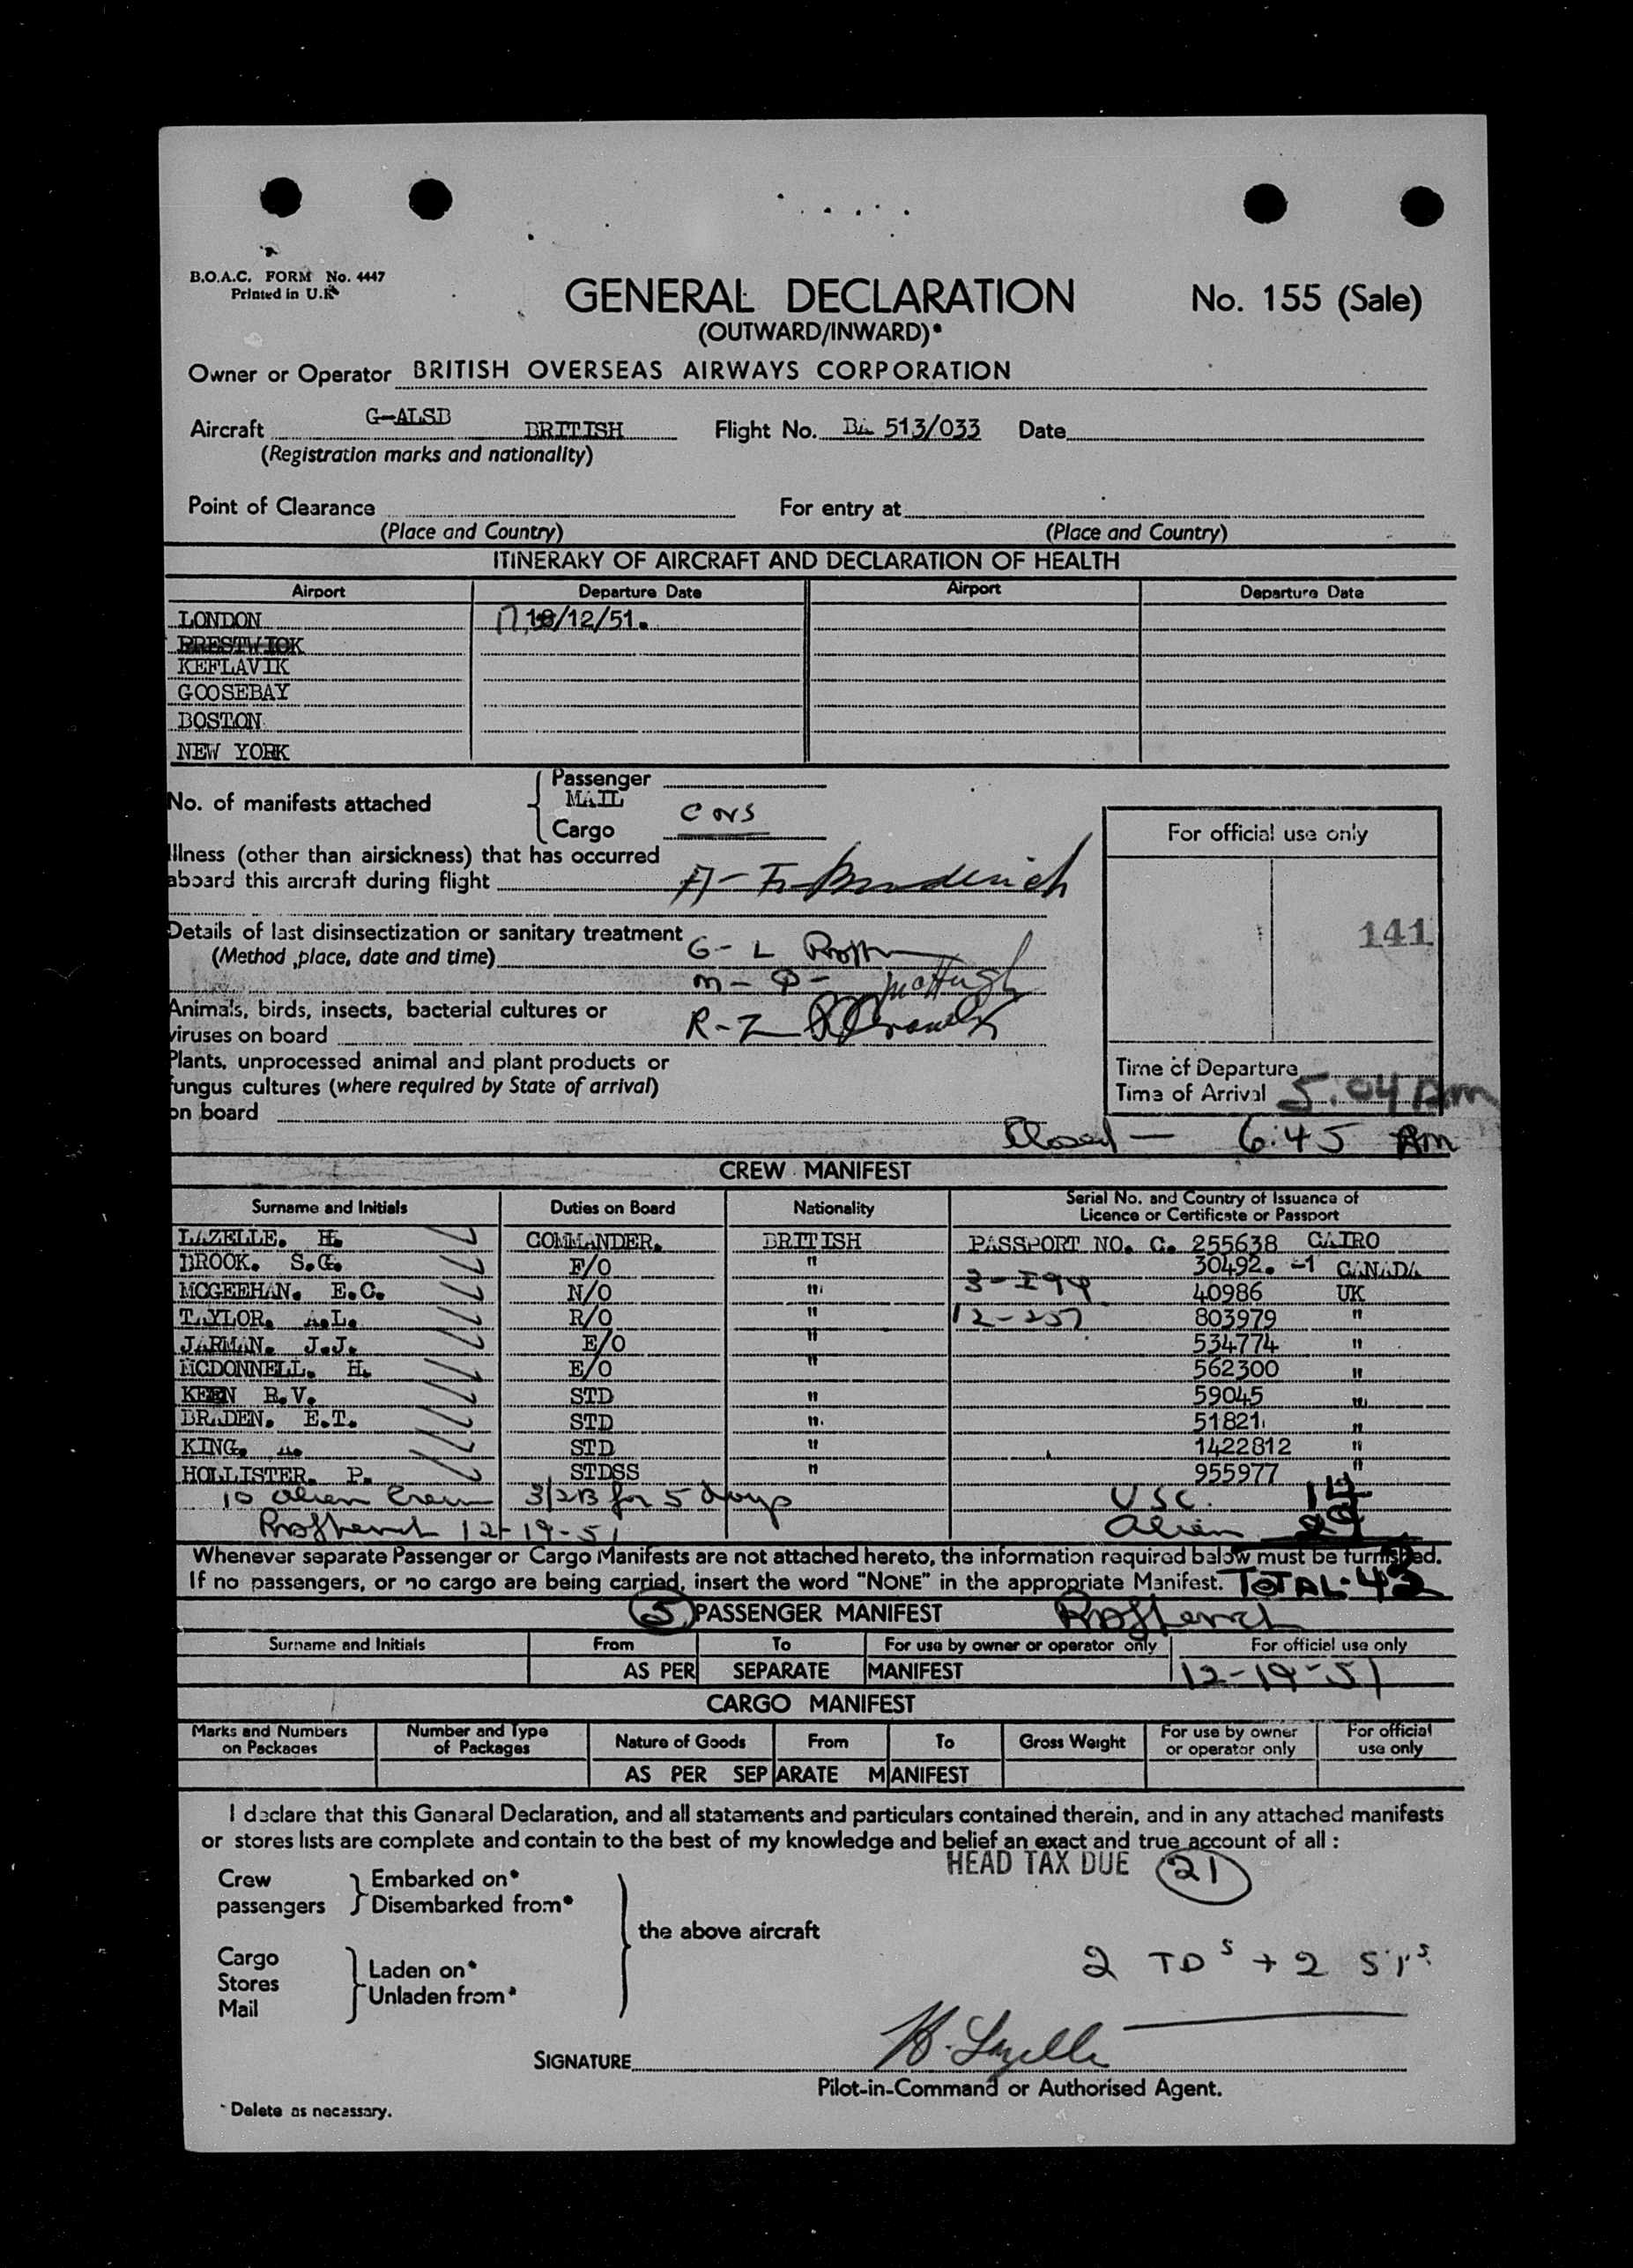 B.O.A.C. FORM No. 4447
Printed in U.K
GENERAL DECLARATION
No. 155 (Sale)
(OUTWARD/INWARD)*
Owner or Operator BRITISH OVERSEAS AIRWAYS CORPORATION
Aircraft G-ALSB BRITISH Flight No. BA 513/033 Date
(Registration marks and nationality)
Point of Clearance For entry at
(Place and Country) (Place and Country)
ITINERARY OF AIRCRAFT AND DECLARATION OF HEALTH
Airport Departure Date Airport Departure Date
LONDON 17 18/12/51.
PRESTWICK
KEFLAVIK
GOOSEBAY
BOSTON
NEW YORK
No. of manifests attached
Passenger
MAIL
Cargo
For official use only
Illness (other than airsickness) that has occurred
aboard this aircraft during flight A-F
141
Details of last disinsectization or sanitary treatment G-L
(Method, place, date and time)
M-Q- McHugh
Animals, birds, insects, bacterial cultures or
viruses on board R-Z
Plants, unprocessed animal and plant products or
fungus cultures (where required by State of arrival)
on board
Time of Departure
Time of Arrival 5:04 Am
Closed — 6:45 Am
CREW MANIFEST
Surname and Initials Duties on Board Nationality Serial No. and Country of Issuance of
Licence or Certificate or Passport
LAZELLE. H. COMMANDER. BRITISH PASSPORT NO. C. 255638 CAIRO
BROOK. S.G. F/O " 30492. -1 CANADA
MCGEEHAN. E.C. N/O " 40986 UK
TAYLOR. A.L. R/O " 12-257 803979 "
JARMAN. J.J. E/O " 534774 "
MCDONNELL. H. E/O " 562300 "
KEEN R.V. STD " 59045 "
BRADEN. E.T. STD " 51821 "
KING. A. STD " 1422812 "
HOLLISTER. P. STDSS " 955977 "
10 alien Crew 3/2B for 5 days USC. 14
12-19-51 alien
Whenever separate Passenger or Cargo Manifests are not attached hereto, the information required below must be furnished.
If no passengers, or no cargo are being carried, insert the word "NONE" in the appropriate Manifest. TOTAL-43
5 PASSENGER MANIFEST
Surname and Initials From To For use by owner or operator only For official use only
AS PER SEPARATE MANIFEST 12-19-51
CARGO MANIFEST
Marks and Numbers on Packages Number and Type of Packages Nature of Goods From To Gross Weight For use by owner or operator only For official use only
AS PER SEPARATE MANIFEST
I declare that this General Declaration, and all statements and particulars contained therein, and in any attached manifests
or stores lists are complete and contain to the best of my knowledge and belief an exact and true account of all :
HEAD TAX DUE 21
Crew
passengers
Embarked on*
Disembarked from*
the above aircraft
Cargo
Stores
Mail
Laden on*
Unladen from*
2 TDs + 2
SIGNATURE H. Lazelle
Pilot-in-Command or Authorised Agent.
* Delete as necessary.